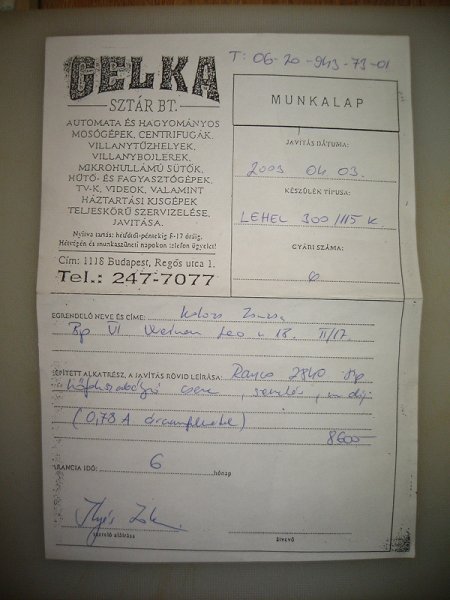 T: 06-20-943-73-01
GELKA
SZTÁR BT.
AUTOMATA ÉS HAGYOMÁNYOS
MOSÓGÉPEK, CENTRIFUGÁK,
VILLANYTŰZHELYEK,
VILLANYBOJLEREK,
MIKROHULLÁMÚ SÜTŐK,
HŰTŐ- ÉS FAGYASZTÓGÉPEK,
TV-K, VIDEOK, VALAMINT
HÁZTARTÁSI KISGÉPEK
TELJESKÖRŰ SZERVIZELÉSE,
JAVÍTÁSA.
Nyitva tartás: hétfőtől-péntekig 8-17 óráig.
Hétvégén és munkaszüneti napokon telefon ügyelet!
Cím: 1118 Budapest, Regős utca 1.
Tel.: 247-7077
MUNKALAP
JAVÍTÁS DÁTUMA:
2003 04 03.
KÉSZÜLÉK TÍPUSA:
LEHEL 300/115 K
GYÁRI SZÁMA:
EGRENDELŐ NEVE ÉS CÍME:
Bp VI Leo u 18. II/17.
ÉPÍTETT ALKATRÉSZ, A JAVÍTÁS RÖVID LEÍRÁSA: Ranco 2840 tip
hőfokszabályzó csere
(0,78 A áramfelvétel)
8600
ARANCIA IDŐ: 6 hónap
szerelő aláírása
átvevő